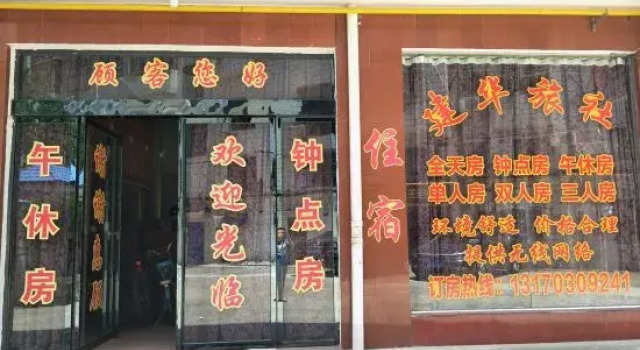 顾客您好
午休房
谢谢惠顾
欢迎光临
钟点房
住宿
達华旅社
全天房 钟点房 午休房
单人房 双人房 三人房
环境舒适 价格合理
提供无线网络
订房热线:13170309241